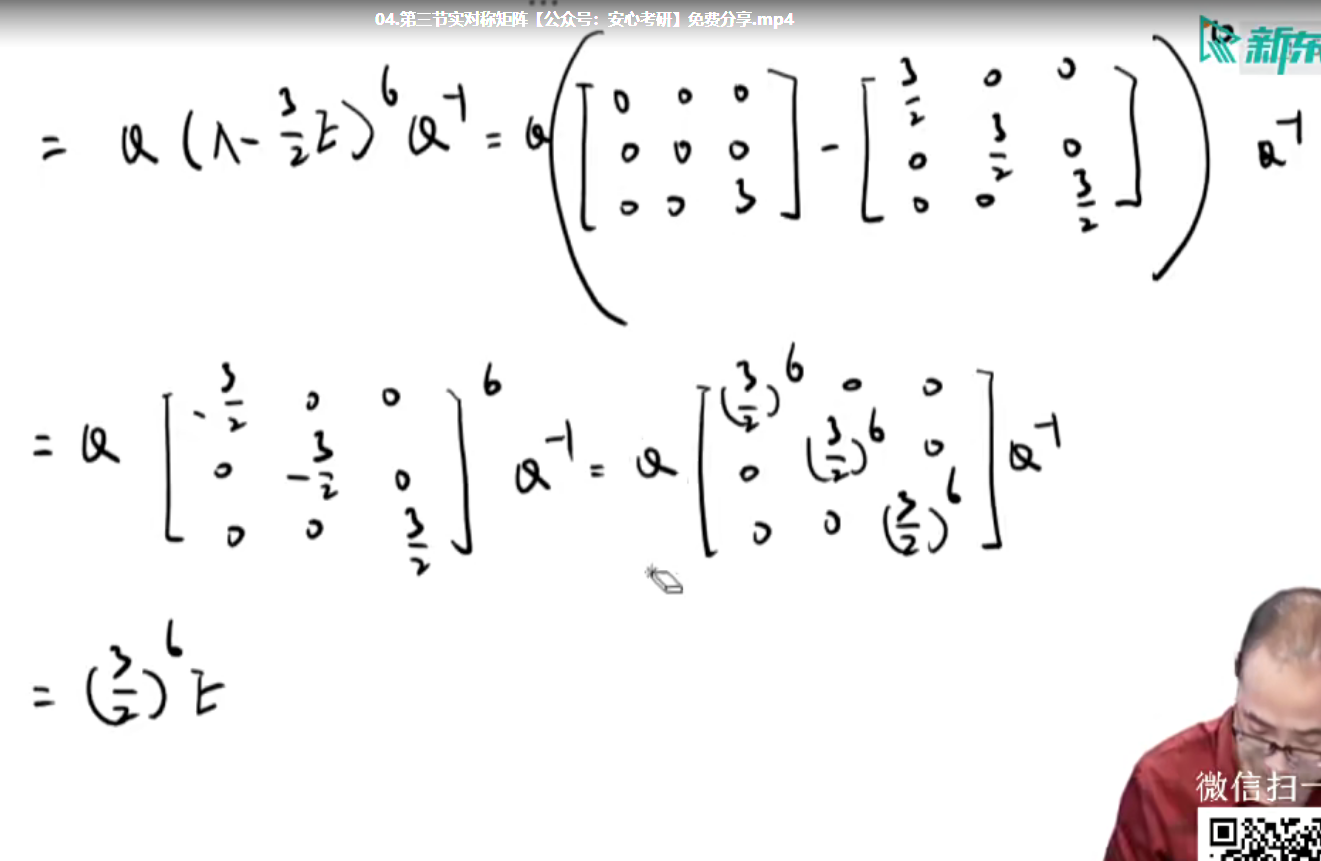 04.第三节实对称矩阵【公众号：安心考研】免费分享.mp4
新东
= Q (Λ - 3/2 E)^6 Q^-1 = Q ( [ 0 0 0 ; 0 0 0 ; 0 0 3 ] - [ 3/2 0 0 ; 0 3/2 0 ; 0 0 3/2 ] ) Q^-1
= Q [ -3/2 0 0 ; 0 -3/2 0 ; 0 0 3/2 ]^6 Q^-1 = Q [ (3/2)^6 0 0 ; 0 (3/2)^6 0 ; 0 0 (3/2)^6 ] Q^-1
= (3/2)^6 E
微信扫一